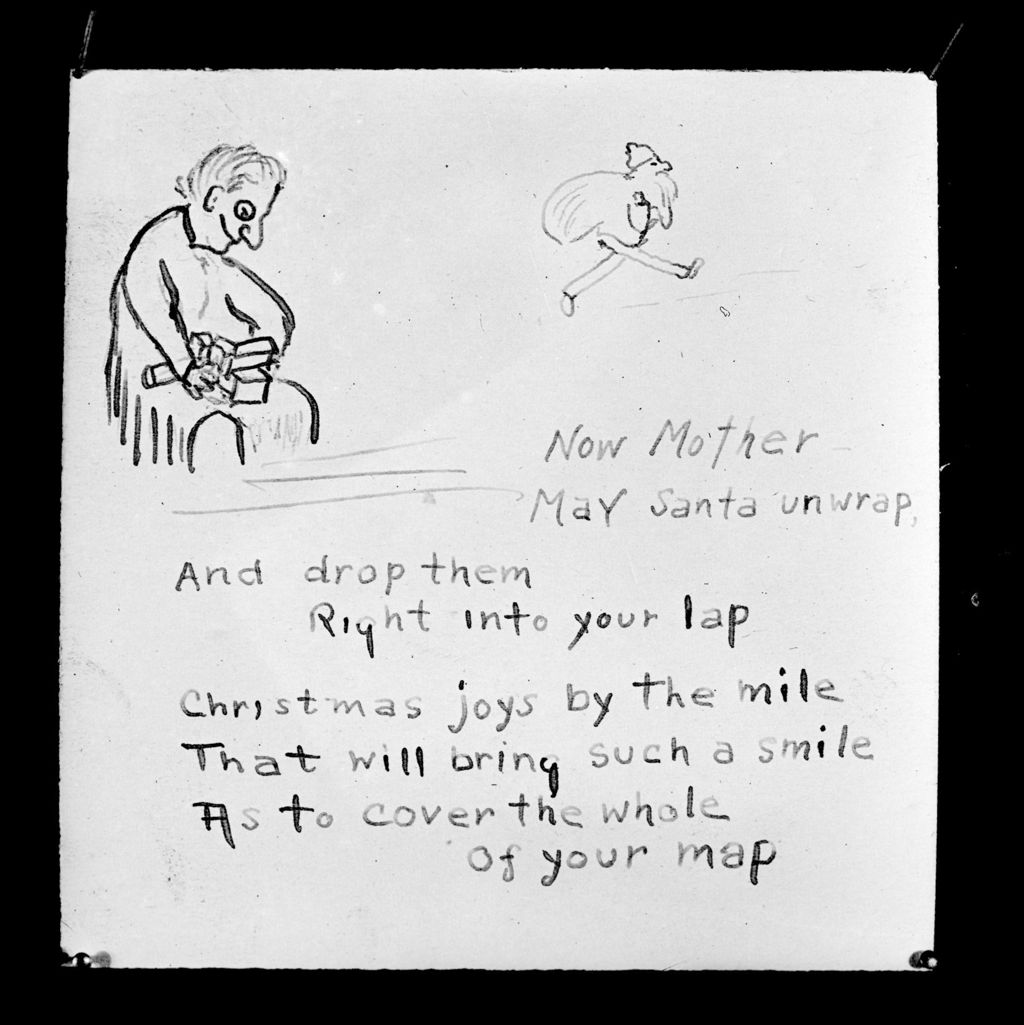 Now Mother
May Santa unwrap,
And drop them
Right into your lap
Christmas joys by the mile
That will bring such a smile
As to cover the whole
Of your map